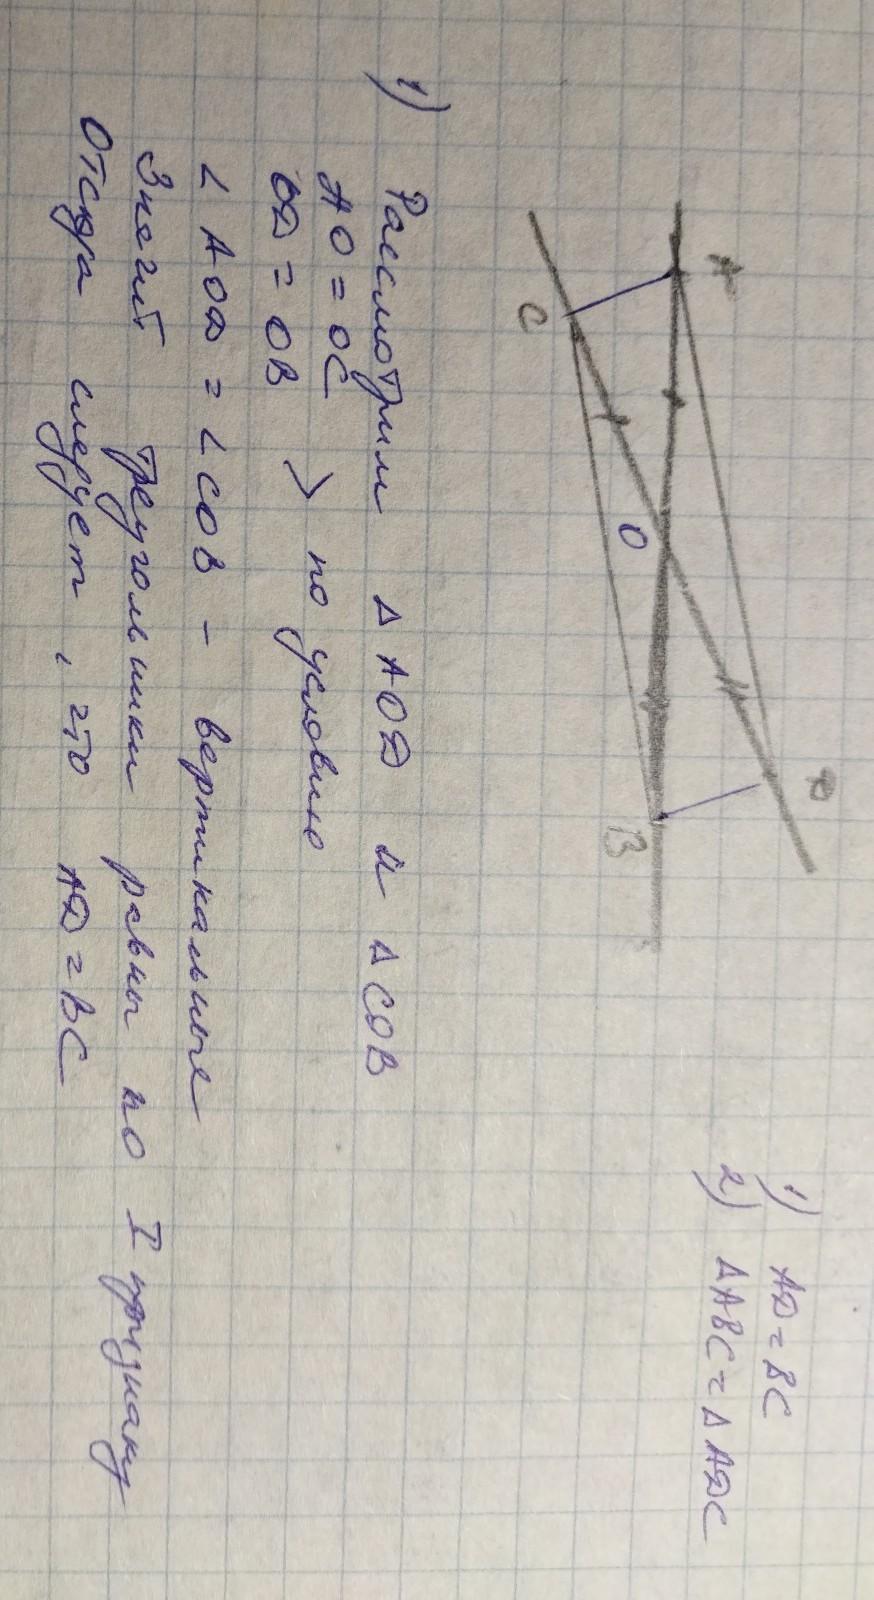 A
D
O
C
B
1) AD = BC
2) ΔABC = ΔADC
1) Рассмотрим ΔAOD и ΔCOB
AO = OC
OD = OB > по условию
∠AOD = ∠COB - вертикальные
Значит треугольники равны по I признаку
Отсюда следует, что AD = BC